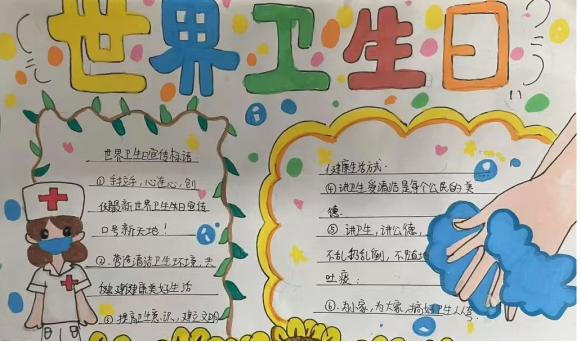 世界卫生日
世界卫生日宣传标语
①手拉手，心连心，创
健最新世界卫生日宣传
口号新天地！
②营造清洁卫生环境，共
做建健康美好生活
③提高卫生意识，建立文明
健康生活方式．
④讲卫生爱清洁是每个公民的美
德．
⑤讲卫生，讲公德，
不乱扔乱倒，不随地
吐痰．
⑥为小家，为大家，搞好卫生人人夸．